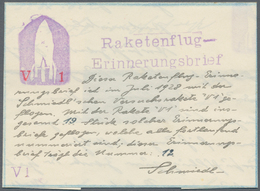 Raketenflug-
Erinnerungsbrief
V 1
Diese Raketenflug-Erinne-
rungsbrief ist im Juli 1928 mit der
Schmiedl'schen Versuchsrakete "V1" ge-
flogen. Mit der Rakete "V1" sind ins-
gesamt 19 Stück solcher Erinnerungs-
briefe geflogen, welche alle fortlaufend
nummeriert sind; dieser Erinnerungs-
brief trägt die Nummer: 12
Schmiedl
V1